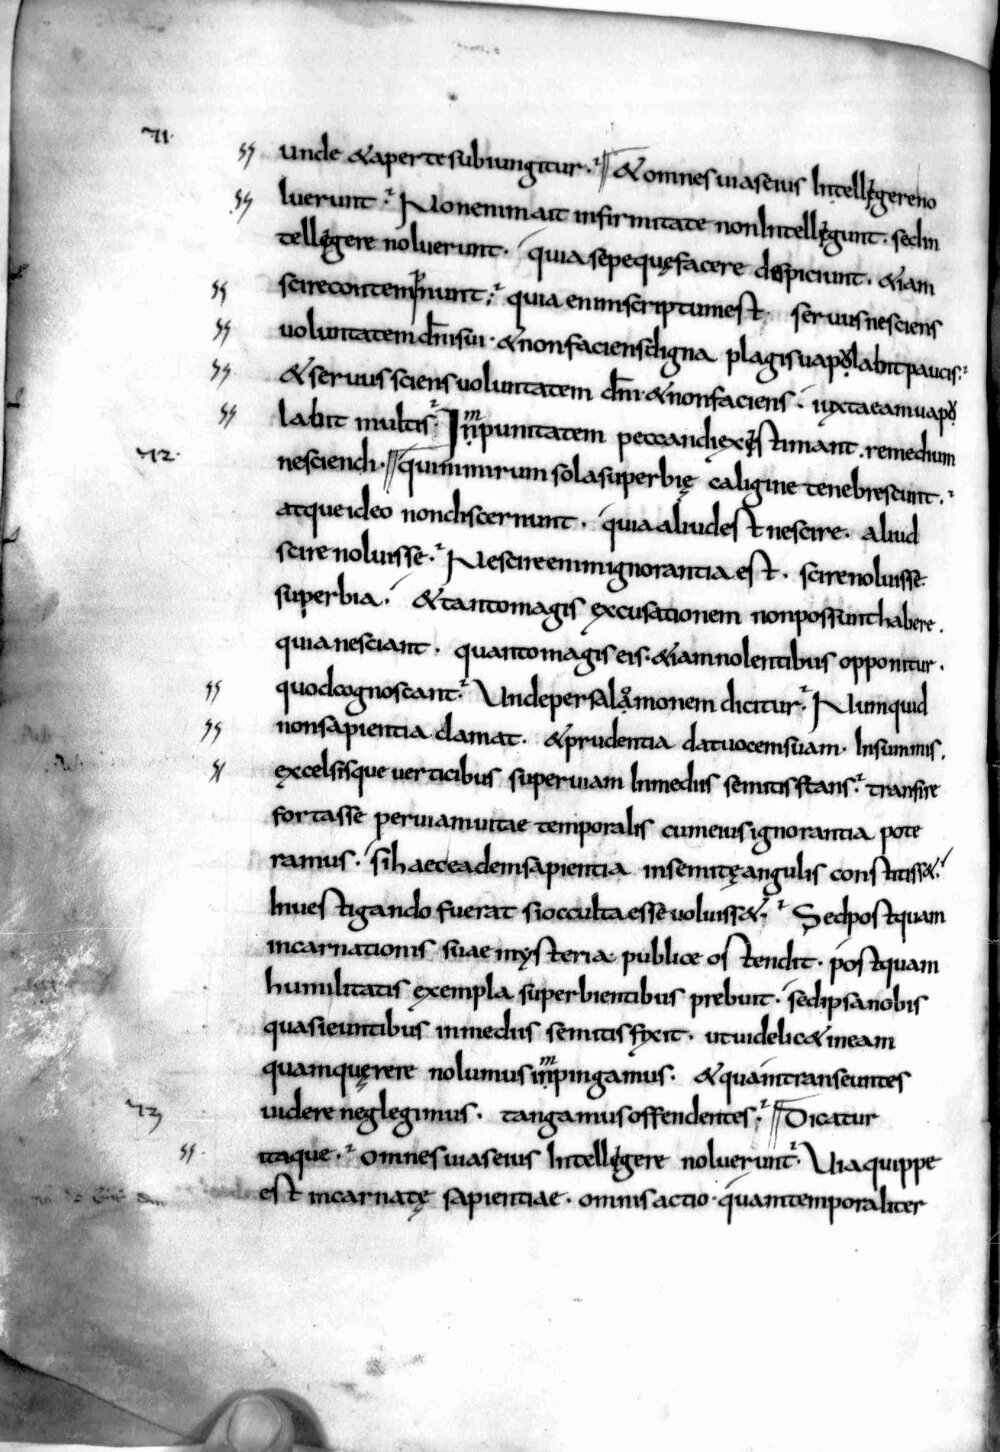 71.
unde & aperte subiungitur. & omnes uias eius Intellegere no
luerunt. Non enim ait infirmitate non Intellegunt. sed in
tellegere noluerunt. quia sepe quę facere despiciunt. &iam
scire contempnunt. quia enim scriptum est. seruus nesciens
uoluntatem dni sui. & non faciens digna plagis uapolabit paucis.
& seruus sciens uoluntatem dni & non faciens. iuxta eam uapo
labit multis. Impunitatem peccandi existimant. remedium
72.
nesciendi. qui nimirum sola superbię caligine tenebrescunt.
atque ideo non discernunt. quia aliud est nescire. aliud
scire noluisse. Nescire enim ignorantia est. scire noluisse
superbia. & tanto magis excusationem non possunt habere.
quia nesciant. quanto magis eis. &iam nolentibus opponitur.
quod cognoscant. Unde per salomonem dicitur. Numquid
non sapientia clamat. & prudentia dat uocem suam. In summis.
excelsisque uerticibus super uiam In mediis semitis stans. transire
fortasse per uiam uitae temporalis cum eius ignorantia pote
ramus. si haec eadem sapientia in semitę angulis constitiss&.
Inuestigando fuerat si occulta esse uoluiss&. Sed postquam
incarnationis suae mysteria publice ostendit. postquam
humilitatis exempla superbientibus prebuit. sed ipsa nobis
quasi euntibus in mediis semitis fixit. ut uidelic& in eam
quam quęrere nolumus impingamus. & quam transeuntes
73
uidere neglegimus. tangamus offendentes. Dicatur
itaque. omnes uias eius Intellegere noluerunt. Via quippe
est incarnatę sapientiae. omnis actio. quam temporaliter